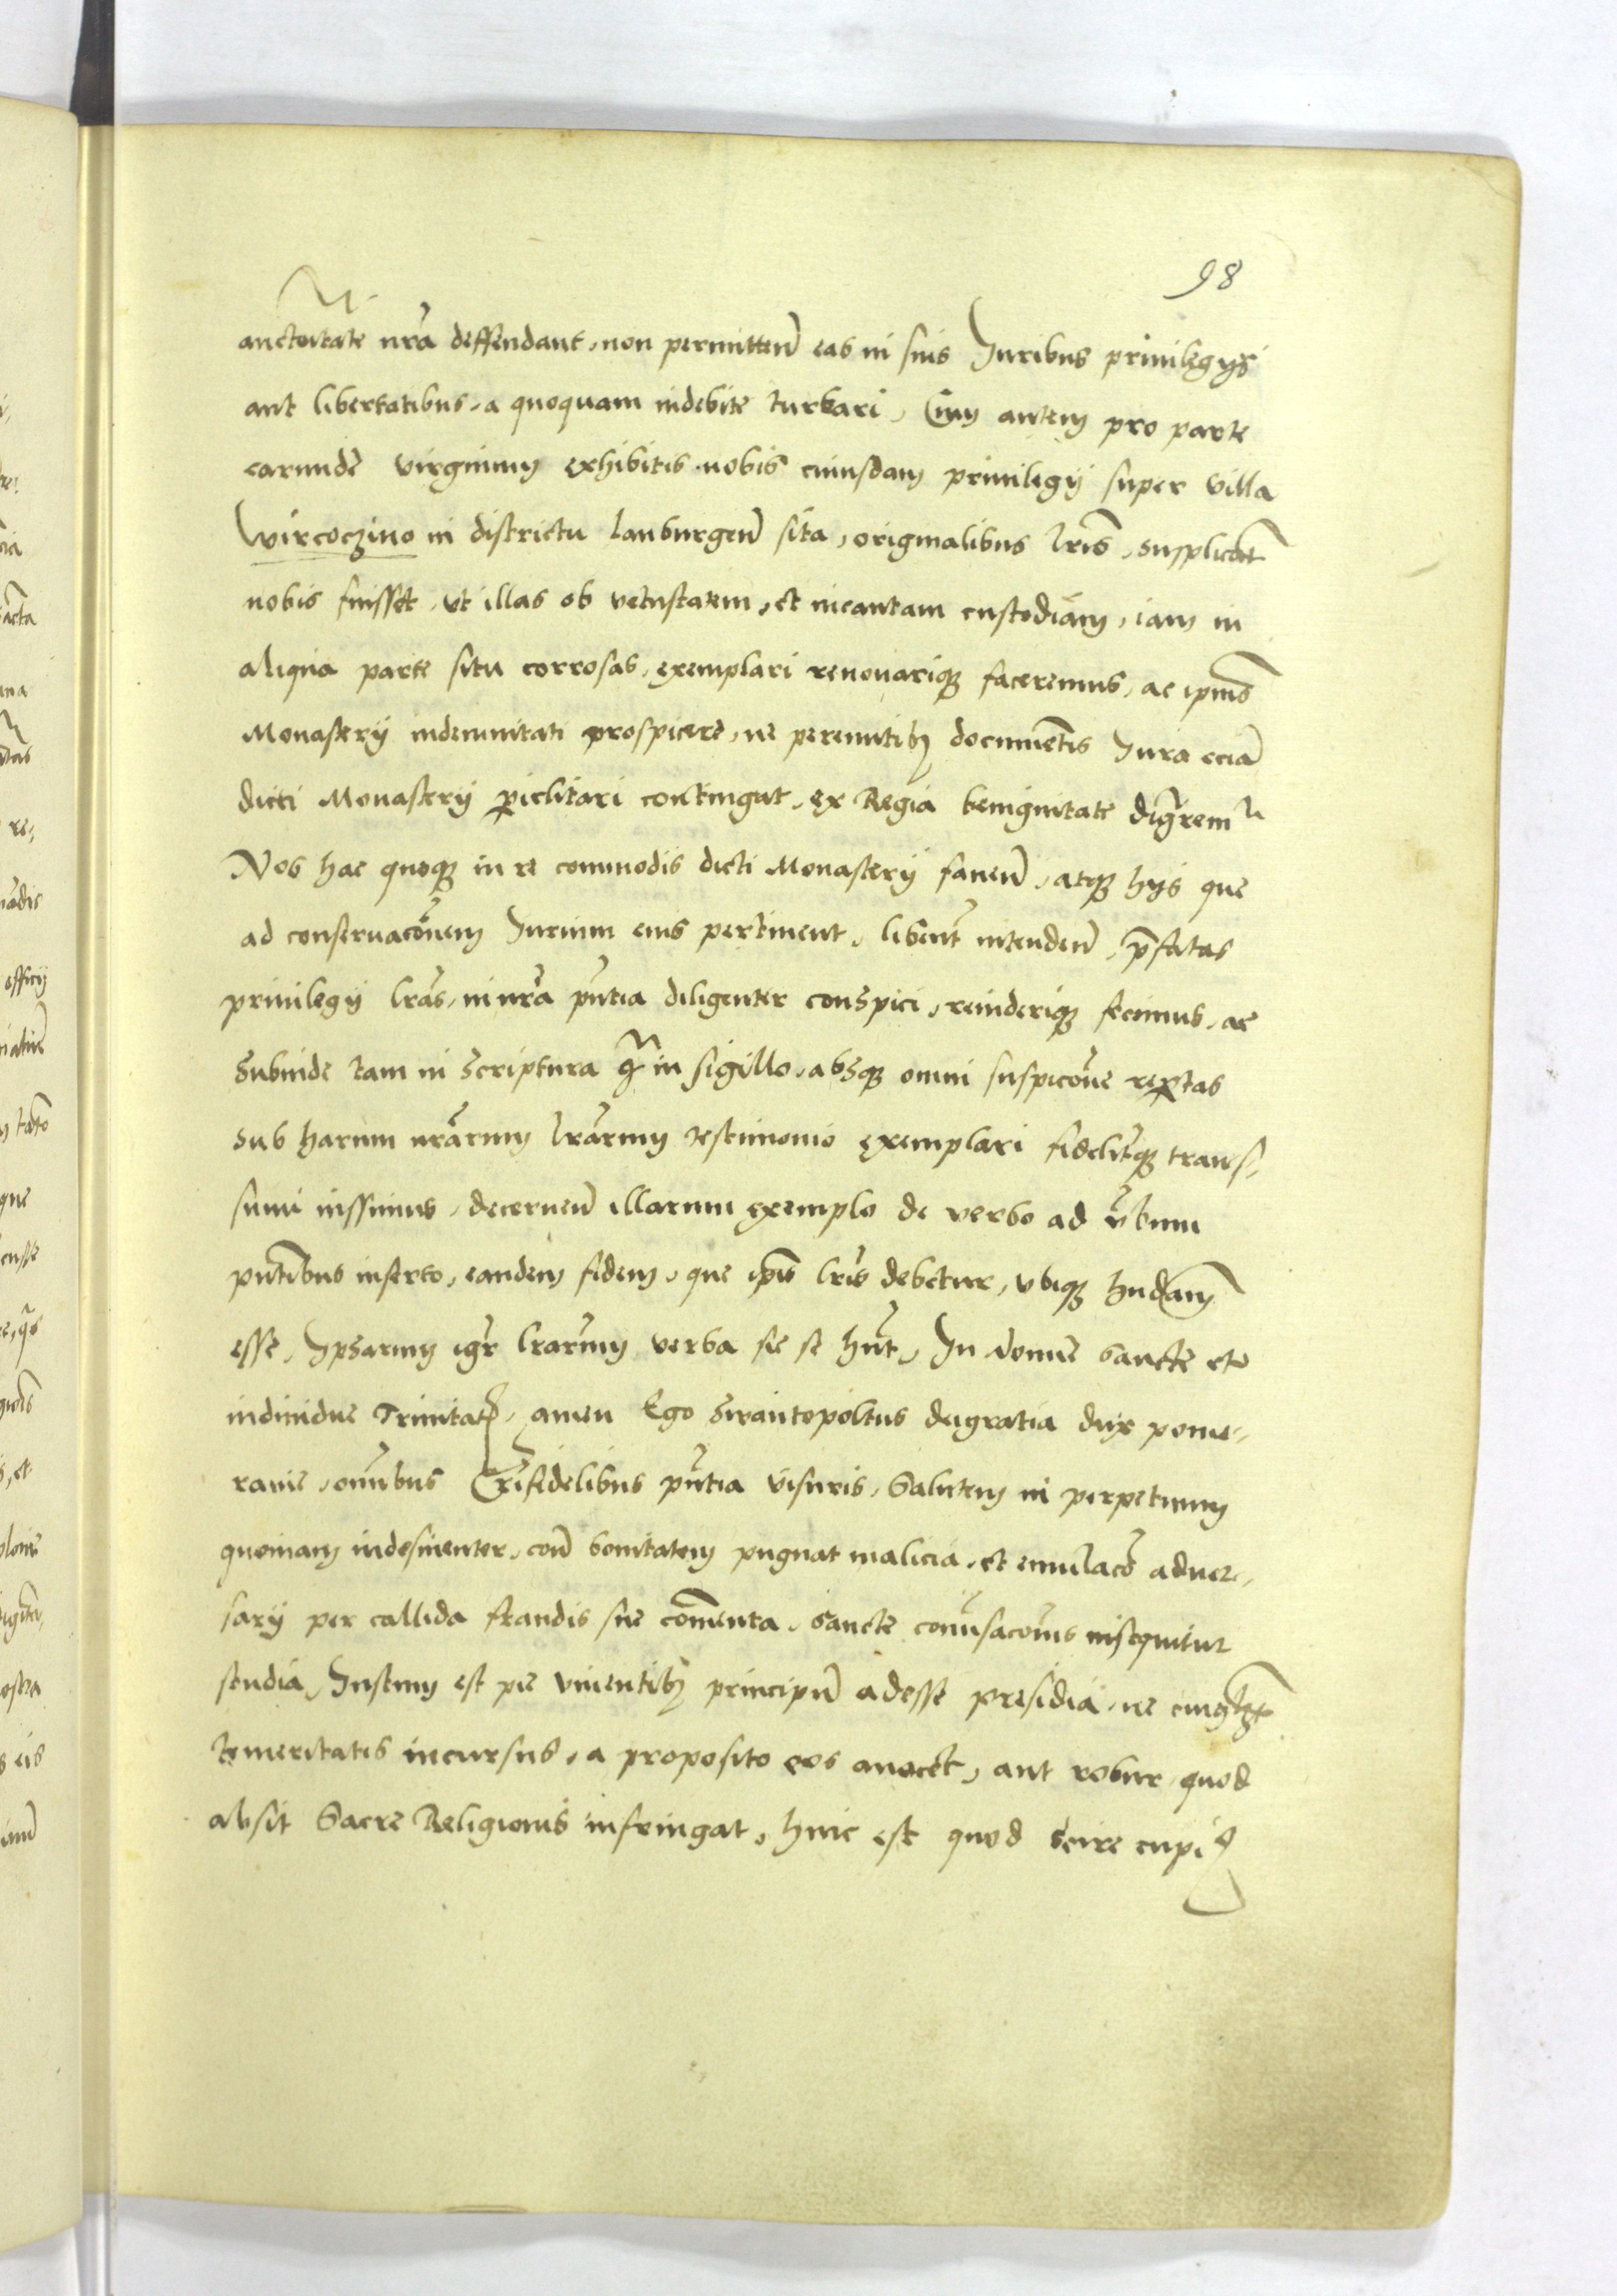 98
auctoritate nr̃a deffendant, non permitten̄ eas in suis Iuribus privilegijs
aut libertatibus, a quoquam indebite turbari, Cum autem pro parte
earundē virginum exhibitis nobis cuiusdam privilegij super villa
Wircoczino in districtu Lauburgen̄ sita, originalibus lrīs, supplicat̄
nobis fuisset, ut illas ob vetustatem, et incautam custodiam, iam in
aliqua parte situ corrosas, exemplari renovariqꝫ faceremus, ac ipius̄
Monasterij indemnitati prospicere, ne peremtibꝫ documentis Iura eciā
dicti Monasterij ꝑiclitari contingat, ex Regia benignitate dignarem̃r
Nos hac quoqꝫ in re commodis dicti Monasterij faven̄, atqꝫ hijs que
ad conservacōnem Iurium eius pertinent, libent̃ intenden̄, p̄fatas
privilegij lrās, in nr̃a pn̄tia diligenter conspici, reviderique fecimus, ac
Subinde tam in Scriptura q̃ in sigillo, absqꝫ omni suspicōne reꝑtas
sub harum nrārum lrārum testimonio exemplari fidelit̃qꝫ trans,
sumi iussimus, decernen̄ illarum exemplo de verbo ad v̄bum
pn̄tibus inserto, eandem fidem, que ip̄is lrīs debetur, ubiqꝫ hn̄dam
esse, Ipsarum igr̃ lrārum verba sic se hn̄t, In nomīe sancte et
individue Trinitatꝭ, amen Ego Swantopoltus dei gratia dux pome,
ranie, omībus Cr̄ifidelibus pn̄tia visuris, Salutem in perpetuum
quoniam indesinenter, con̄ bonitatem pugnat malicia, et emulacō adver,
sarij per callida fraudis sue com̄enta, sancte conv̄sacōnis insequitur
studia, Iustum est pie viventibꝫ principum̄ adesse presidia, ne cuiuslibet
temeritatis incursus, a proposito eos avocet, aut robur quod
absit Sacre Religionis infringat, hinc est quod scire cupiꝰ